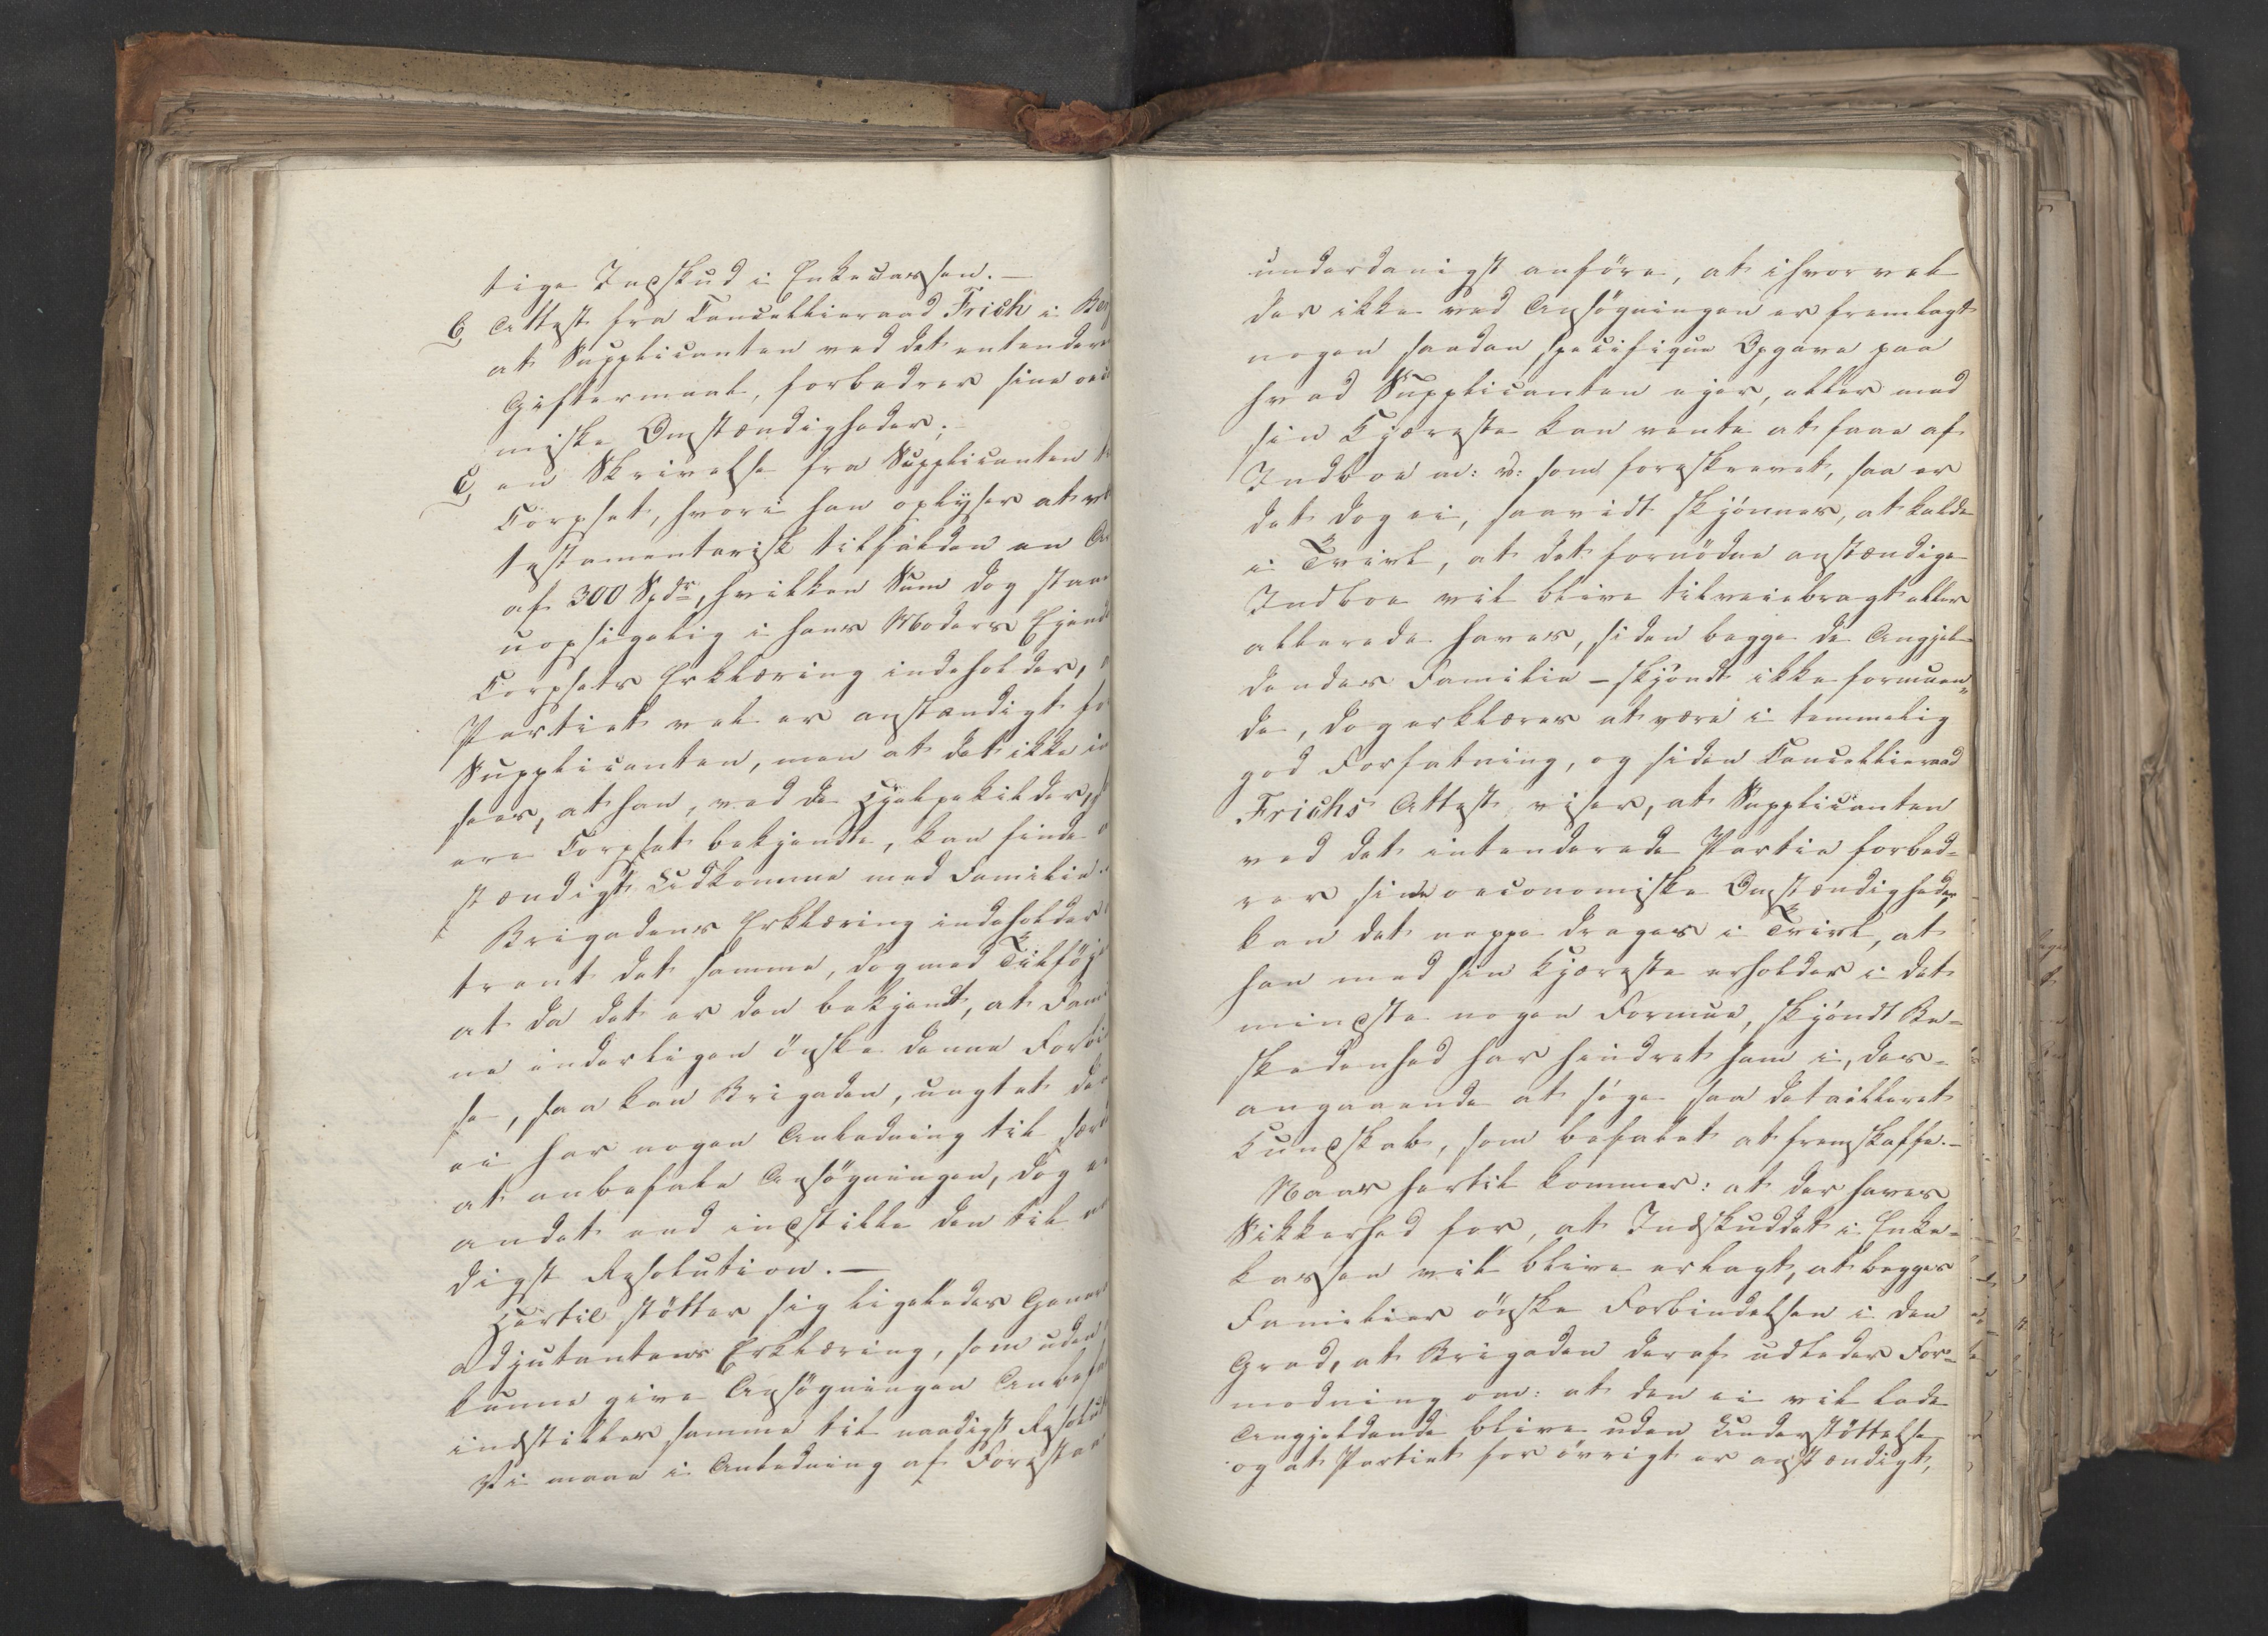 tige Indskud i Enkecassen. —
b, Attest fra Cancellieraad Frich i Ber
at Supplicanten ved det entendere
Giftermaal, forbedrer sine oec
miske Omstændigheder;
C, en Skrivelse fra Supplicanten t
Corpset, hvori han oplyser at v
testamentarisk tilfalden en A
af 300 Spdr, hvilken Sum dog staa
uopsigelig i hans Moders Eiend
Corpsets Erklæring indeholder, a
Partiet vel er anstændigt fo
Supplicanten, men at det ikke in
sees, at han, ved de Hjelpekilder, s
ere Corpset bekjendte, kan finde a
stændigt Udkomme med Familie.
Brigadens Erklæring indeholder
trent det samme, dog med Tilföje
at da det er den bekjendt, at Fami
ne inderligen önske denne Forbi
se, saa kan Brigaden, uagtet den
ei har nogen Anledning til sær
at anbefale Ansögningen, dog e
andet end indstille den til n
digst Resolution. —
Hertil stötter sig ligeledes General
adjutantens Erklæring, som uden
kunne give Ansögningen Anbefa
indstiller samme til naadigst Resolut
Vi maae i Anledning af Forestaa
underdanigst anföre, at ihvorvel
der ikke ved Ansögningen er fremlagt
nogen saadan specifique Opgave paa
hvad Supplicanten ejer, eller med
sin Kjæreste kan vente at faae af
Indboe m: v: som foreskrevet, saa er
det dog ei, saavidt skjönnes, at kalde
i Tvivl, at det fornödne anstændige
Indboe vil blive tilveiebragt eller
allerede haves, siden begge de Angjel-
dendes Familie – skjöndt ikke formuen-
de, dog erklæres at være i temmelig
god Forfatning, og siden Cancellieraad
Frichs Attest viser, at Supplicanten
ved det intenderede Partie forbed-
rer sine oeconomiske Omstændigheder,
kan det neppe drages i Tvivl, at
han med sin Kjæreste erholder i det
mindste nogen Formue, skjöndt Be-
skedenhed har hindret ham i, der-
angaaende at söge saa detailleret
Kundskab, som befalet at fremskaffe. –
Naar hertil kommer: at der haves
Sikkerhed for, at Indskuddet i Enke-
kassen vil blive erlagt, at begges
Familier önske Forbindelsen i den
Grad, at Brigaden deraf udleder For-
modning om: at den ei vil lade
Angjeldende blive uden Understöttelse,
og at Partiet for övrigt er anstændigt,